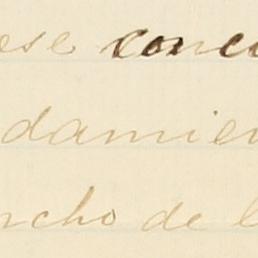 ese conce
damien
ncho de l